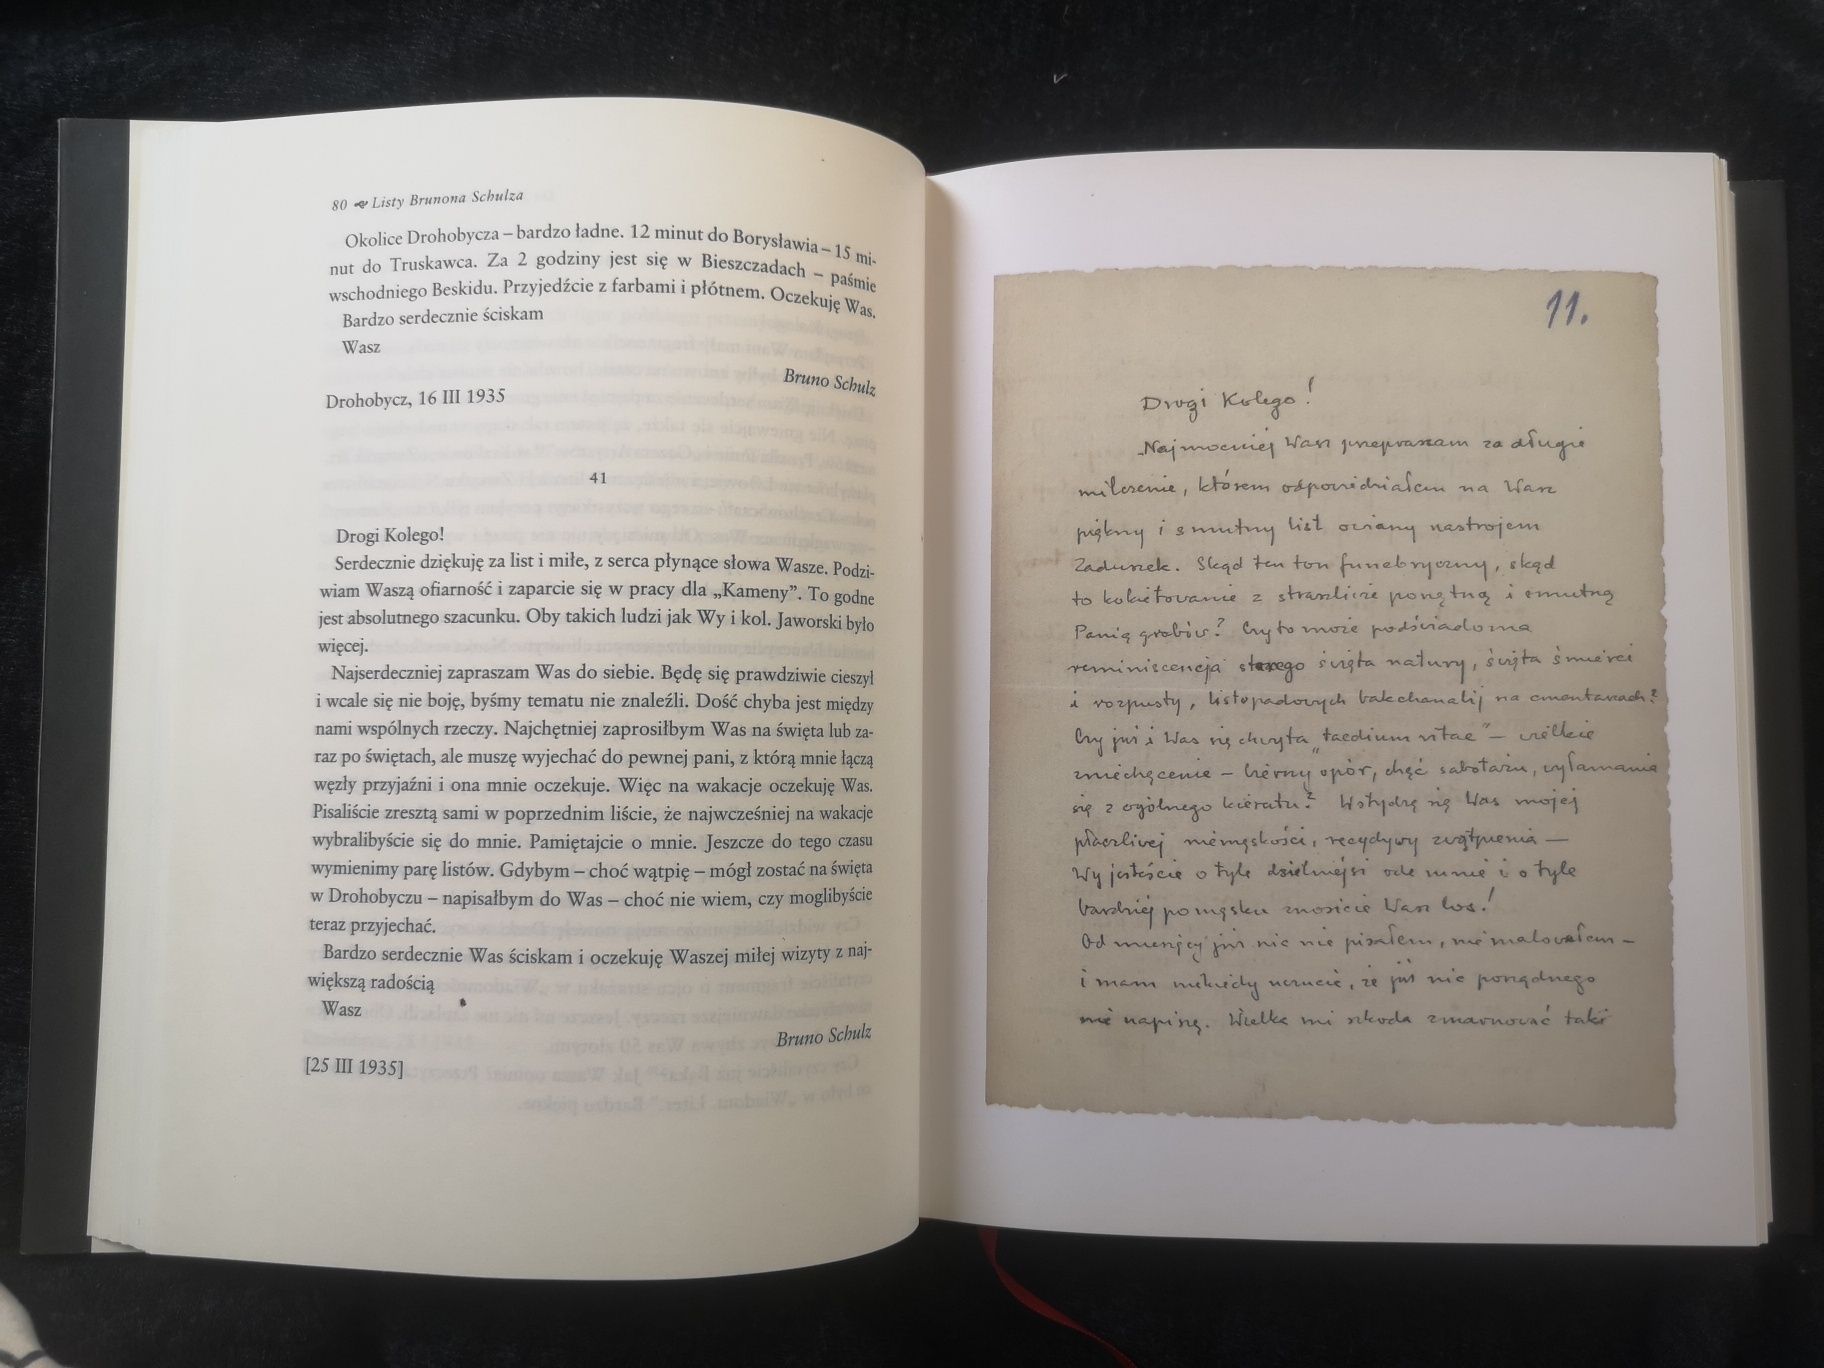 80 Listy Brunona Schulza
Okolice Drohobycza – bardzo ładne. 12 minut do Borysławia – 15 mi-
nut do Truskawca. Za 2 godziny jest się w Bieszczadach – paśmie
wschodniego Beskidu. Przyjedźcie z farbami i płótnem. Oczekuję Was.
Bardzo serdecznie ściskam
Wasz
Bruno Schulz
Drohobycz, 16 III 1935
41
Drogi Kolego!
Serdecznie dziękuję za list i miłe, z serca płynące słowa Wasze. Podzi-
wiam Waszą ofiarność i zaparcie się w pracy dla „Kameny”. To godne
jest absolutnego szacunku. Oby takich ludzi jak Wy i kol. Jaworski było
więcej.
Najserdeczniej zapraszam Was do siebie. Będę się prawdziwie cieszył
i wcale się nie boję, byśmy tematu nie znaleźli. Dość chyba jest między
nami wspólnych rzeczy. Najchętniej zaprosiłbym Was na święta lub za-
raz po świętach, ale muszę wyjechać do pewnej pani, z którą mnie łączą
węzły przyjaźni i ona mnie oczekuje. Więc na wakacje oczekuję Was.
Pisaliście zresztą sami w poprzednim liście, że najwcześniej na wakacje
wybralibyście się do mnie. Pamiętajcie o mnie. Jeszcze do tego czasu
wymienimy parę listów. Gdybym – choć wątpię – mógł zostać na święta
w Drohobyczu – napisałbym do Was – choć nie wiem, czy moglibyście
teraz przyjechać.
Bardzo serdecznie Was ściskam i oczekuję Waszej miłej wizyty z naj-
większą radością
Wasz
Bruno Schulz
[25 III 1935]
11.
Drogi Kolego!
Najmocniej Was przepraszam za długie
milczenie, którem odpowiedziałem na Wasz
piękny i smutny list owiany nastrojem
Zaduszek. Skąd ten ton funebryczny, skąd
to kokietowanie z straszliwie ponętną i smutną
Panią grobów? Czy to może podświadoma
reminiscencja starego święta natury, święta śmierci
i rozpusty, listopadowych bakchanalij na cmentarzach?
Czy już i Was się chwyta „taedium vitae” – wielkie
zniechęcenie – bierny opór, chęć sabotażu, wyłamania
się z ogólnego kieratu? Wstydzę się Was mojej
płaczliwej niemęskości, recydywy zwątpienia –
Wy jesteście o tyle dzielniejsi ode mnie i o tyle
bardziej po męsku znosicie Wasz los!
Od miesięcy już nic nie pisałem, nie malowałem –
i mam niekiedy uczucie, że już nic porządnego
nie napiszę. Wielka mi szkoda zmarnować taki